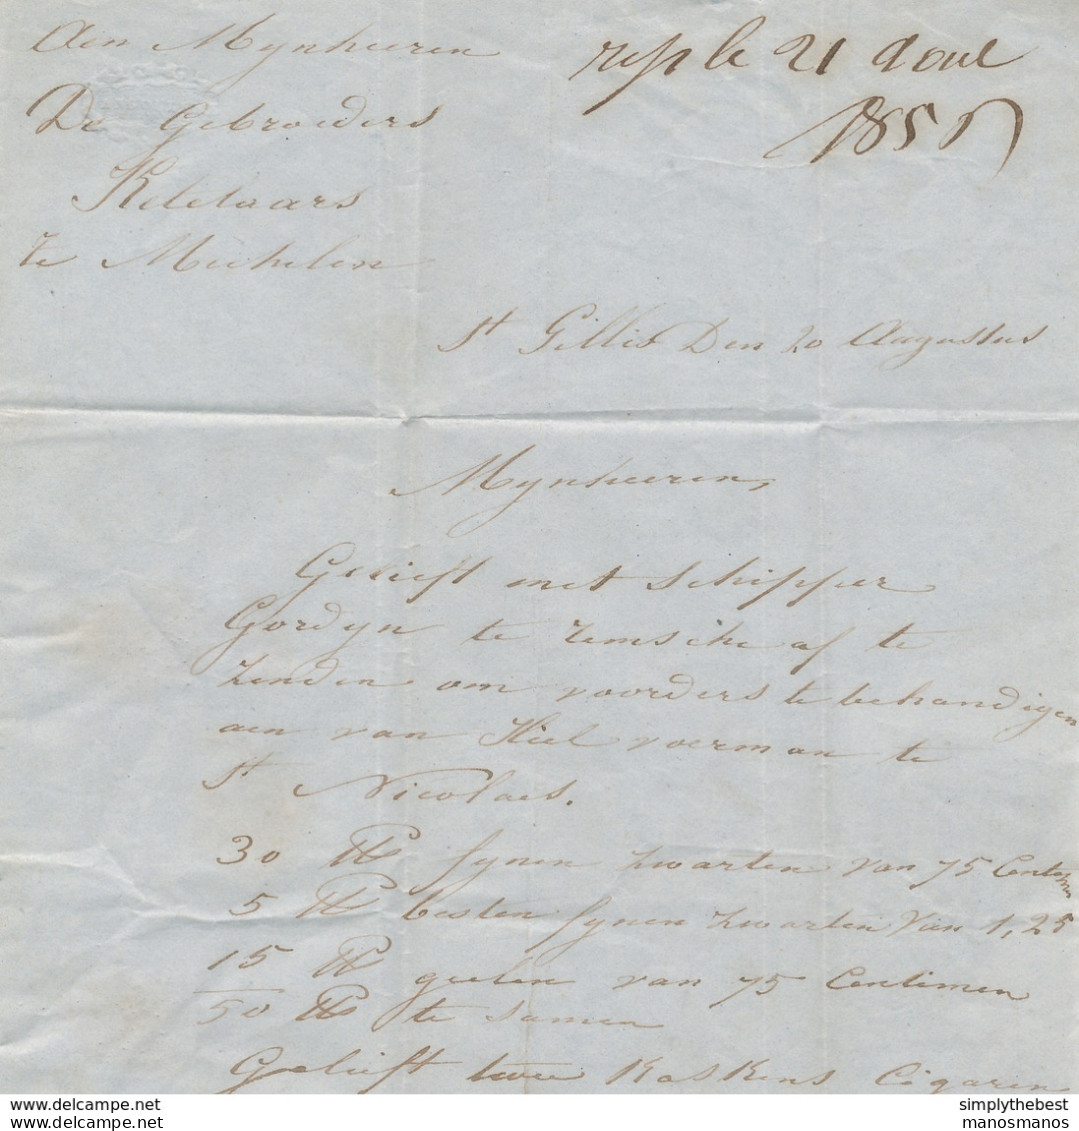 Aen Mynheeren
De Gebroeders
Ketelaars
te Mechelen
rep le 21 Aout
185
St Gillis Den 20 Augustus
Mynheeren,
Gelieft met schipper
Gordyn te temsche af te
zenden om voorders te behandigen
aen van Hiel voerman te
St Nicolaes.
30 lb fynen zwarten van 75 Centim
5 lb besten fynen zwarten van 1,25
15 lb geelen van 75 Centimen
50 lb te samen
Gelieft twee Kaskens Cigaren
simplythebest
manosmanos